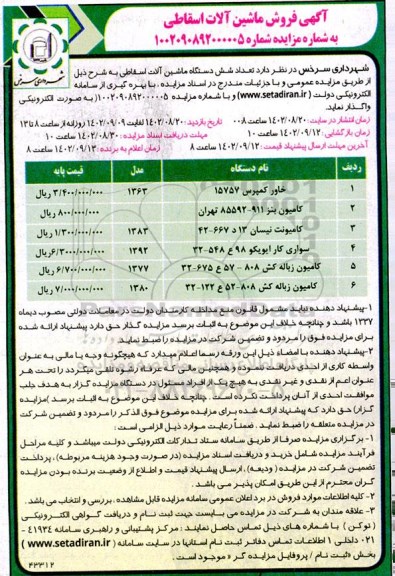 آگهی فروش ماشین آلات اسقاطی
به شماره مزایده شماره ۱۰۰۲۰۹۰۸۹۲۰۰۰۰۰۵
شهرداری سرخس
شهرداری سرخس در نظر دارد تعداد شش دستگاه ماشین آلات اسقاطی به شرح ذیل
از طریق مزایده عمومی و با جزئیات مندرج در اسناد مزایده، با بهره گیری از سامانه
الکترونیکی دولت (www.setadiran.ir) و با شماره مزایده ۱۰۰۲۰۹۰۸۹۲۰۰۰۰۰۵ به صورت الکترونیکی
واگذار نماید.
زمان انتشار در سایت: ۱۴۰۲/۰۸/۲۰ ساعت ۸:۰۰ تاریخ بازدید: ۱۴۰۲/۰۸/۲۰ لغایت ۱۴۰۲/۰۹/۰۹ روزانه از ساعت ۸ تا ۱۳
زمان بازگشایی: ۱۴۰۲/۰۹/۱۲ ساعت ۱۰ مهلت دریافت اسناد مزایده: ۱۴۰۲/۰۸/۳۰ ساعت ۱۰
آخرین مهلت ارسال پیشنهاد قیمت: ۱۴۰۲/۰۹/۱۲ ساعت ۸ زمان اعلام به برنده: ۱۴۰۲/۰۹/۱۳ ساعت ۸
ردیف نام دستگاه مدل قیمت پایه
۱ خاور کمپرس ۱۵۷۵۷ ۱۳۶۳ ۳/۴۰۰/۰۰۰/۰۰۰ ریال
۲ کامیون بنز ۹۱۱-۸۵۵۹۲ تهران ۸۰۰/۰۰۰/۰۰۰ ریال
۳ کامیونت نیسان ۱۳ د ۶۶۷-۴۲ ۱۳۸۳ ۱/۳۰۰/۰۰۰/۰۰۰ ریال
۴ سواری کار ایویکو ۹۸ ع ۵۴۸-۳۲ ۱۳۹۲ ۶/۳۰۰/۰۰۰/۰۰۰ ریال
۵ کامیون زباله کش ۸۰۸ - ۵۷ ع ۶۷۵-۳۲ ۱۳۷۷ ۶/۷۰۰/۰۰۰/۰۰۰ ریال
۶ کامیون زباله کش ۸۰۸-۵۲ ع ۱۲۲-۳۲ ۱۳۸۰ ۷/۰۰۰/۰۰۰/۰۰۰ ریال
۱-پیشنهاد دهنده نباید مشمول قانون منع مداخله کارمندان دولت در معاملات دولتی مصوب دیماه
۱۳۳۷ باشد و چنانچه خلاف این موضوع به اثبات برسد مزایده گذار حق دارد پیشنهاد ارائه شده
برای مزایده فوق را مردود و تضمین شرکت در مزایده را ضبط نماید.
۲-پیشنهاد دهنده با امضاء ذیل این ورقه رسما اعلام میدارد که هیچگونه وجه یا مالی به عنوان
واسطه کاری از احدی دریافت ننموده و همچنین مالی که صرفه رشوه تلقی میگردد را تحت هر
عنوان اعم از نقدی و غیر نقدی به هیچ یک از افراد مسئول در دستگاه مزایده گزار به هدف جلب
موافقت احدی از آنان پرداخت نکرده است. چنانچه خلاف این موضوع به اثبات برسد )مزایده
گزار( حق دارد که پیشنهاد ارائه شده برای مزایده موضوع فوق الذکر را مردود و تضمین شرکت
در مزایده متعلقه را ضبط نماید. ضمناً رعایت موارد ذیل الزامی است:
۱- برگزاری مزایده صرفا از طریق سامانه ستاد تدارکات الکترونیکی دولت میباشد و کلیه مراحل
فرآیند مزایده شامل خرید و دریافت اسناد مزایده (در صورت وجود هزینه مربوطه)، پرداخت
تضمین شرکت در مزایده (ودیعه)، ارسال پیشنهاد قیمت و اطلاع از وضعیت برنده بودن مزایده
گران محترم از این طریق امکان پذیر می باشد.
۲- کلیه اطلاعات موارد فروش در برد اعلان عمومی سامانه مزایده قابل مشاهده، بررسی و انتخاب می باشد.
۳- علاقه مندان به شرکت در مزایده می بایست جهت ثبت نام و دریافت گواهی الکترونیکی
(توکن) با شماره های ذیل تماس حاصل نمایند: مرکز پشتیبانی و راهبری سامانه ۴۱۹۳۴ -
۰۲۱ داخلی ۱ اطلاعات تماس دفاتر ثبت نام استانها در سایت سامانه (www.setadiran.ir)
بخش «ثبت نام / پروفایل مزایده گر» موجود است.
۴۳۳۱۲